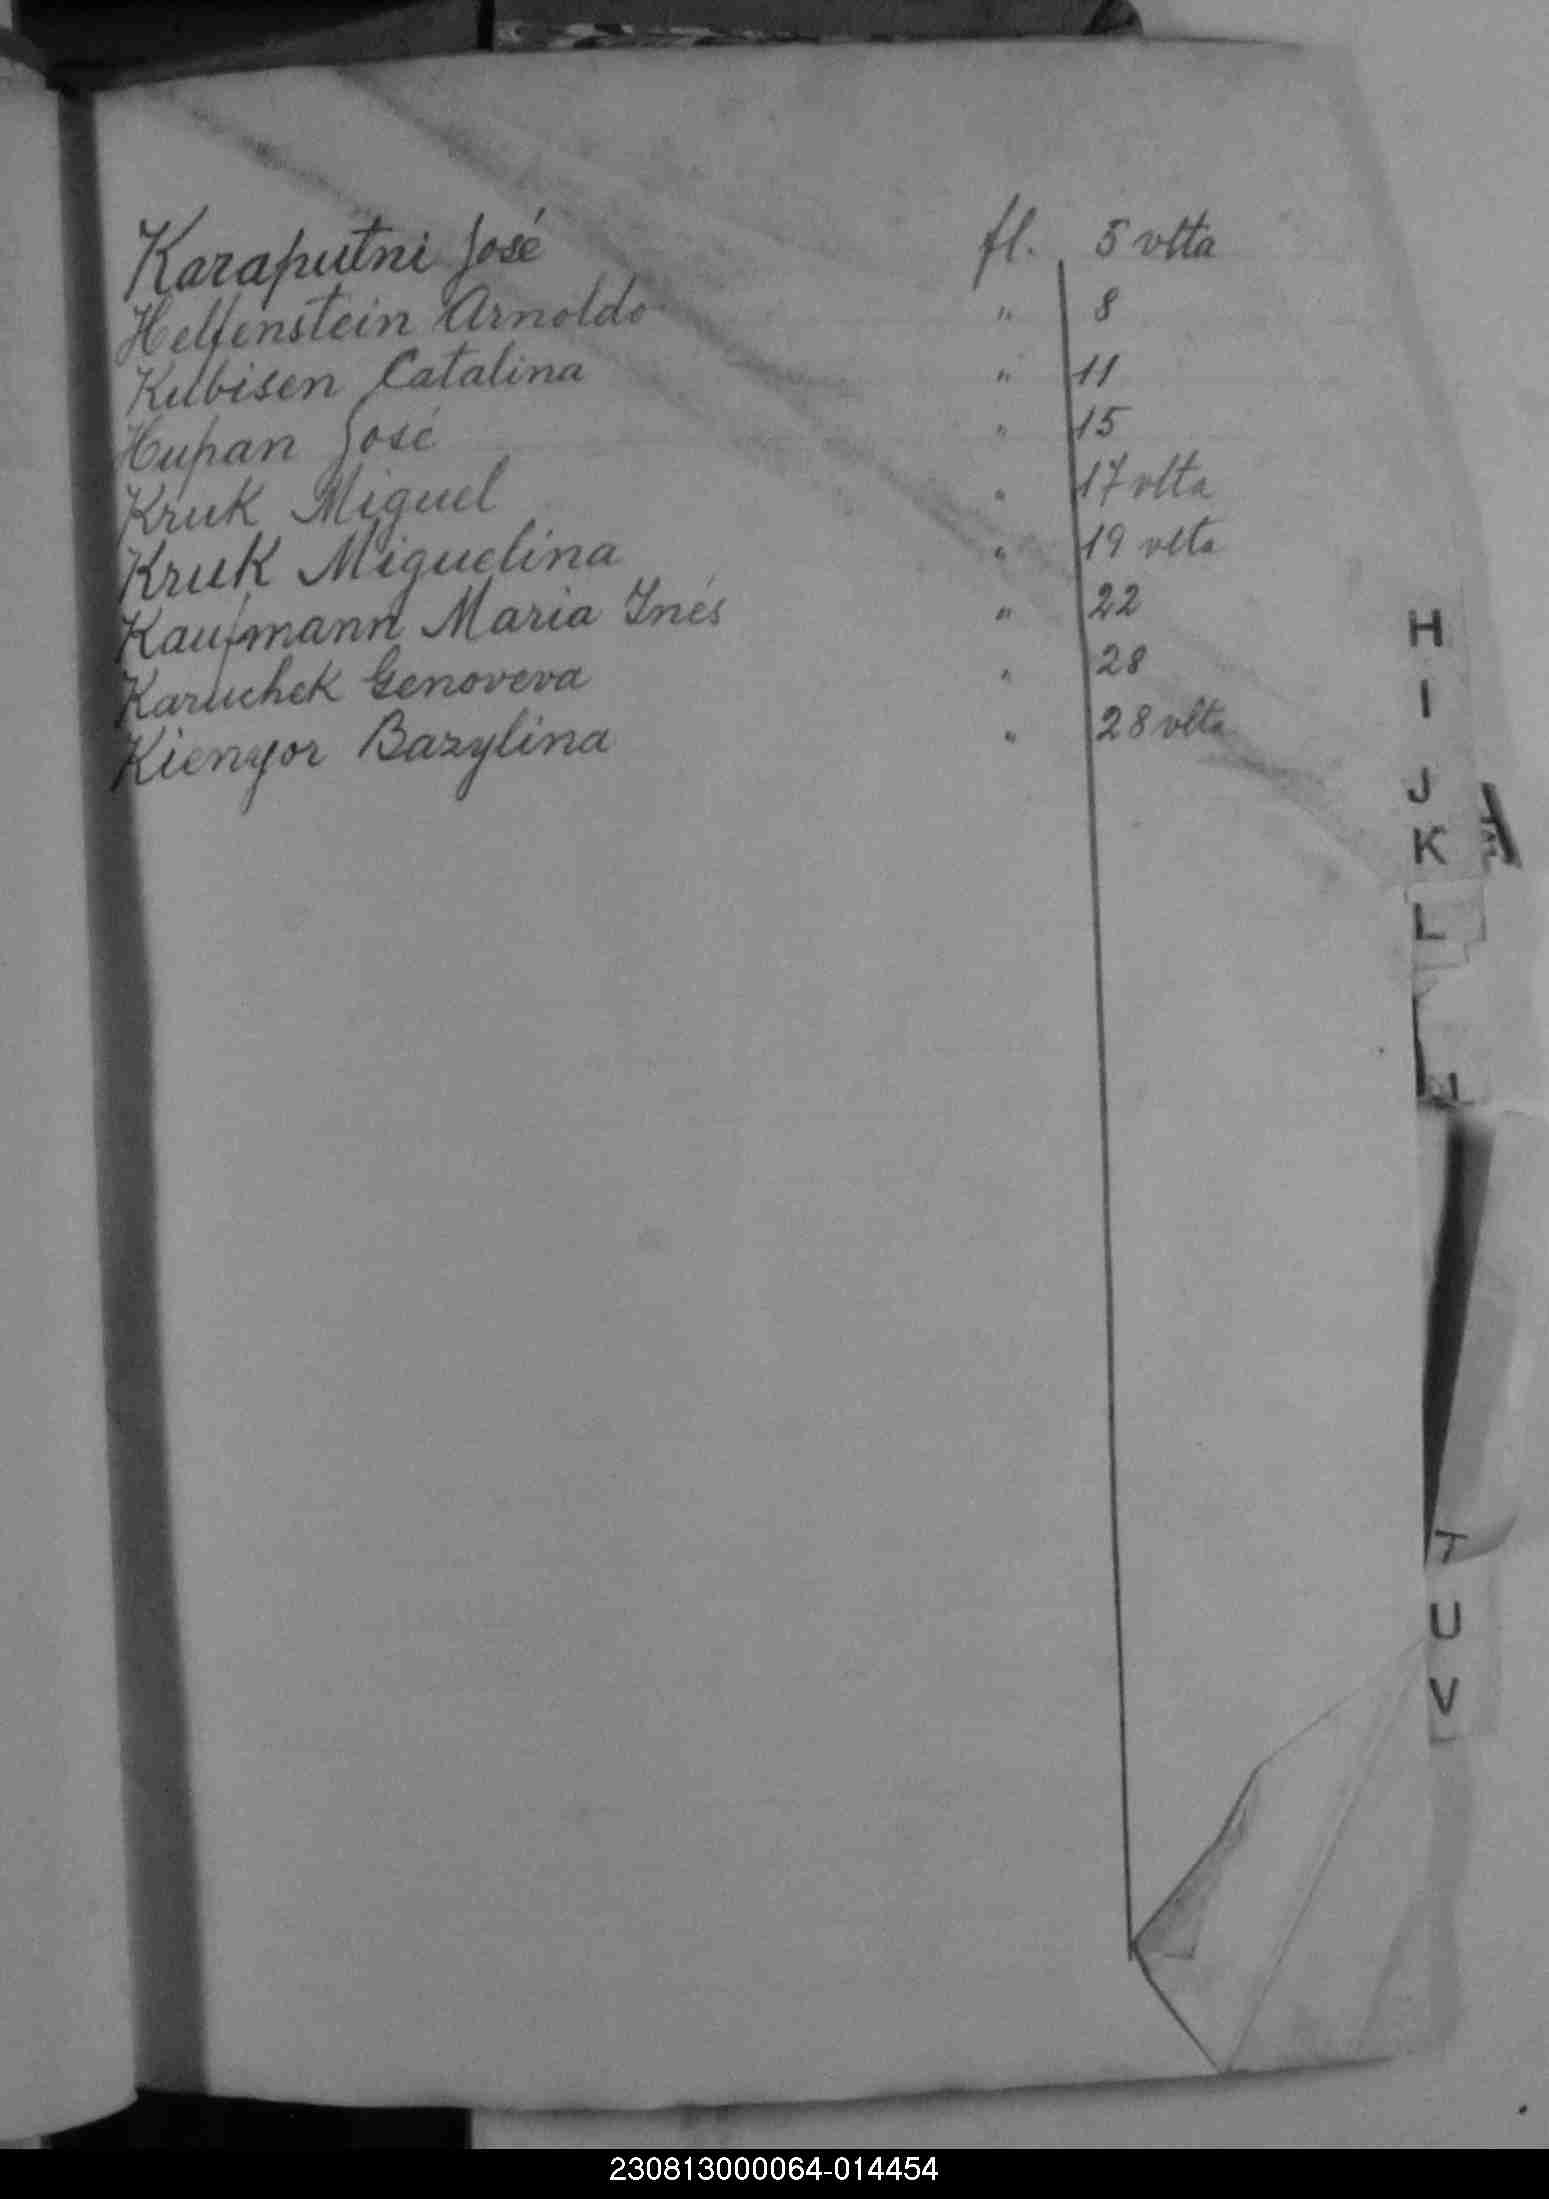 Karaputni José fl. 5 vlta
Helfenstein Arnoldo " 8
Kubisen Catalina " 11
Hupan José " 15
Kruk Miguel " 17 vlta
Kruk Miguelina " 19 vlta
Kaufmann Maria Inés " 22
Karuchek Genoveva " 28
Kienyor Bazylina " 28 vlta
H
I
J
K
L
T
U
V
230813000064-014454